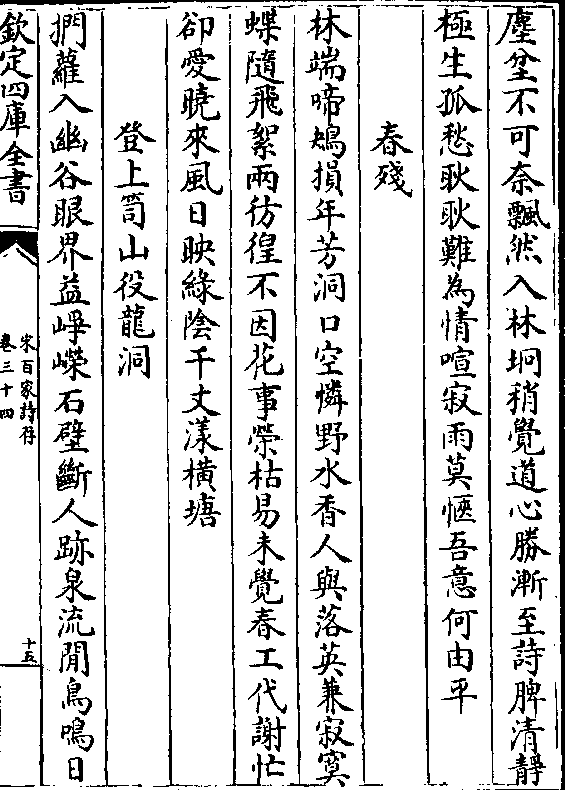 塵坌不可奈飄然入林坰稍覺道心勝漸至詩脾清靜
極生孤愁耿耿難為情喧寂兩莫愜吾意何由平
春殘
林端啼鴂損年芳洞口空憐野水香人與落英兼寂寞
蝶隨飛絮兩彷徨不因花事榮枯易未覺春工代謝忙
卻愛曉來風日映綠陰千丈漾橫塘
登上笥山役龍洞
捫蘿入幽谷眼界益崢嶸石壁斷人跡泉流閒鳥鳴日
欽定四庫全書
宋百家詩存
卷三十四
十五